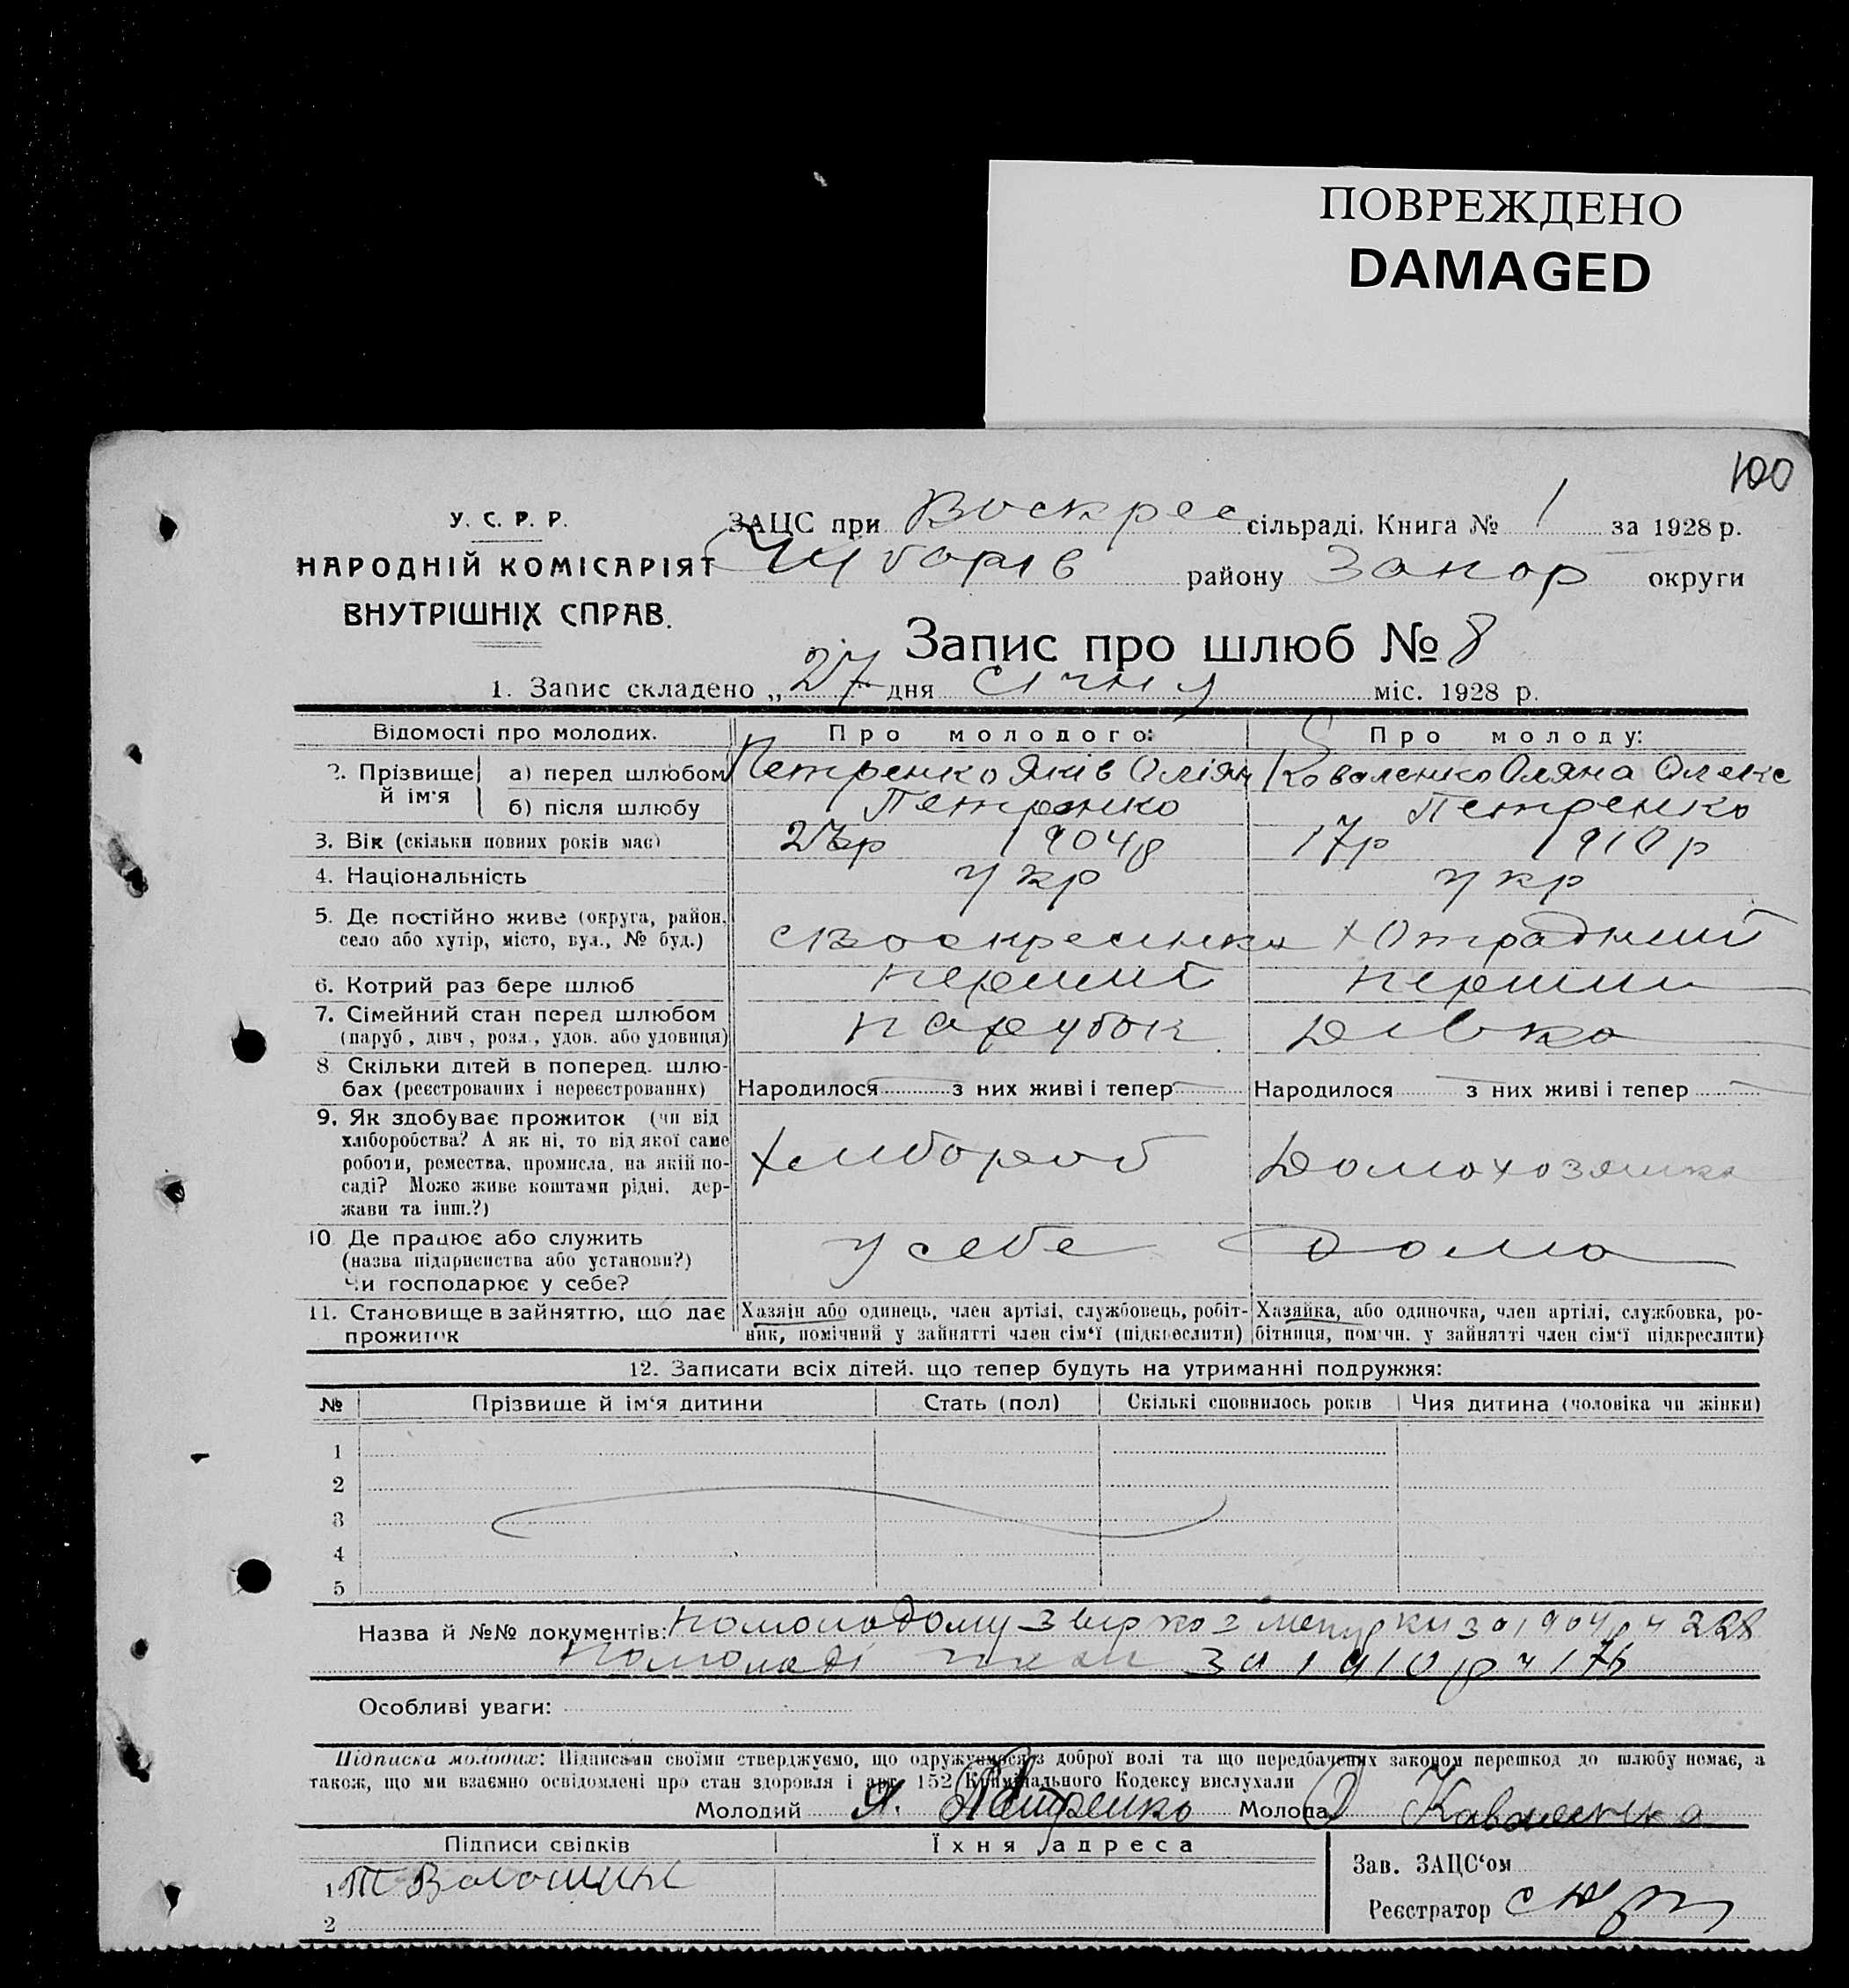 ПОВРЕЖДЕНО
DAMAGED
100
У. С. Р. Р.
НАРОДНІЙ КОМІСАРІЯТ
ВНУТРІШНІХ СПРАВ.
ЗАЦС при Воскрес сільраді. Книга № 1 за 1928 р.
Чубарів району Запор округи
Запис про шлюб № 8
1. Запис складено „ 27 дня січня міс. 1928 р.
Відомості про молодих. Про молодого: Про молоду:
2. Прізвище й ім'я а) перед шлюбом Петренко Яків Оліян Коваленко Оляна Олекс
б) після шлюбу Петренко Петренко
3. Вік (скільки повних років має) 23р 1904р 17р 1910р
4. Національність укр укр
5. Де постійно живе (округа, район, село або хутір, місто, вул., № буд.) с Воскресенка х Отрадний
6. Котрий раз бере шлюб перший перший
7. Сімейний стан перед шлюбом (паруб, дівч, розл., удов. або удовиця) парубок дівка
8 Скільки дітей в поперед. шлюбах (реєстрованих і нереєстрованих) Народилося з них живі і тепер Народилося з них живі і тепер
9. Як здобуває прожиток (чи від хліборобства? А як ні, то від якої саме роботи, ремества, промисла, на якій посаді? Може живе коштами рідні, держави та інш.?) хлибороб Домохозяшка
10 Де працює або служить (назва підприємства або установи?) Чи господарює у себе? у себе дома
11. Становище в зайняттю, що дає прожиток Хазяїн або одинець, член артілі, службовець, робітник, помічний у зайнятті член сім'ї (підкреслити) Хазяйка, або одиночка, член артілі, службовка, робітниця, помічн. у зайнятті член сім'ї підкреслити)
12. Записати всіх дітей, що тепер будуть на утриманні подружжя:
№ Прізвище й ім'я дитини Стать (пол) Скількі сповнилось років Чия дитина (чоловіка чи жінки)
1
2
3
4
5
Назва й №№ документів: По молодому з метрки за 1904р ч 228
По молоді за 1910р ч 176
Особливі уваги:
Підписка молодих: Підписами своїми стверджуємо, що одружуємося з доброї волі та що передбачених законом перешкод до шлюбу немає, а
також, що ми взаємно освідомлені про стан здоровля і арт. 152 Кримінального Кодексу вислухали
Молодий Я. Петренко Молода О Каваленка
Підписи свідків Їхня адреса
1 Т Волошин
2
Зав. ЗАЦС'ом
Реєстратор